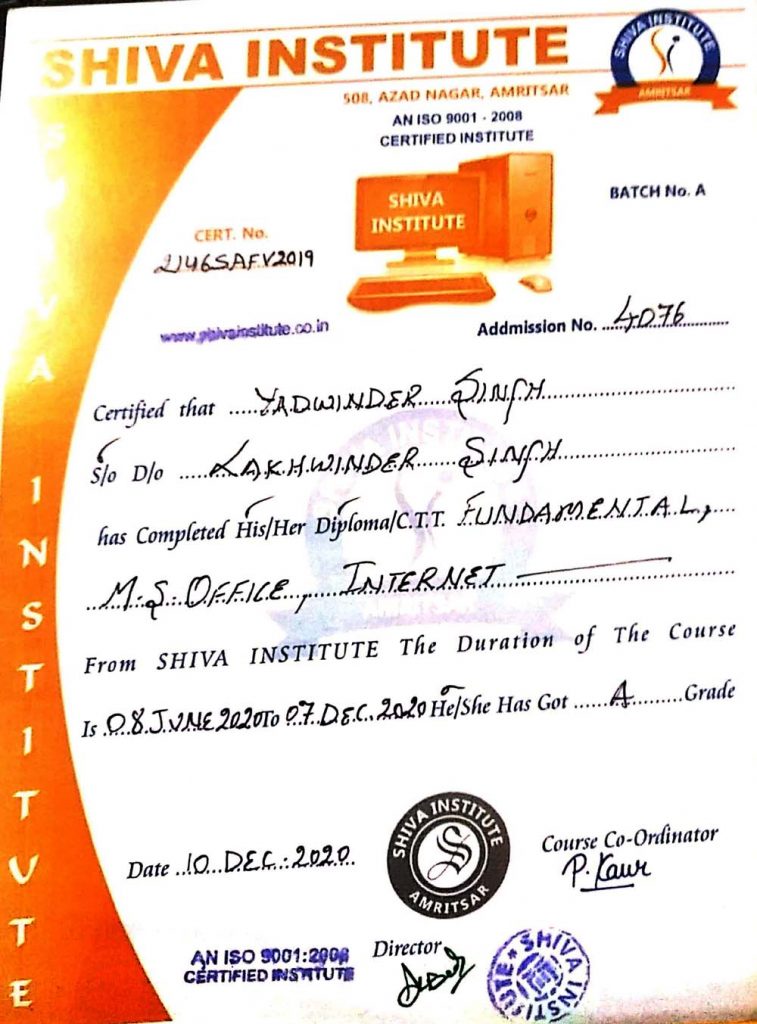 SHIVA INSTITUTE
SHIVA INSTITUTE
AMRITSAR
508, AZAD NAGAR, AMRITSAR
AN ISO 9001 - 2008
CERTIFIED INSTITUTE
SHIVA
INSTITUTE
BATCH No. A
CERT. No.
2146SAFV2019
www.shivainstitute.co.in
Addmission No. ...4076...
Certified that ...YADWINDER SINGH...
S/o D/o ...LAKHWINDER SINGH...
has Completed His/Her Diploma/C.T.T. FUNDAMENTAL,
M.S. OFFICE, INTERNET
From SHIVA INSTITUTE The Duration of The Course
Is 08 JUNE 2020 To 07 DEC. 2020 He/She Has Got ...A... Grade
Date 10 DEC. 2020
SHIVA INSTITUTE
S
AMRITSAR
Course Co-Ordinator
P. Kaur
AN ISO 9001:2008
CERTIFIED INSTITUTE
Director
SHIVA INSTITUTE
SHIVA INSTITUTE